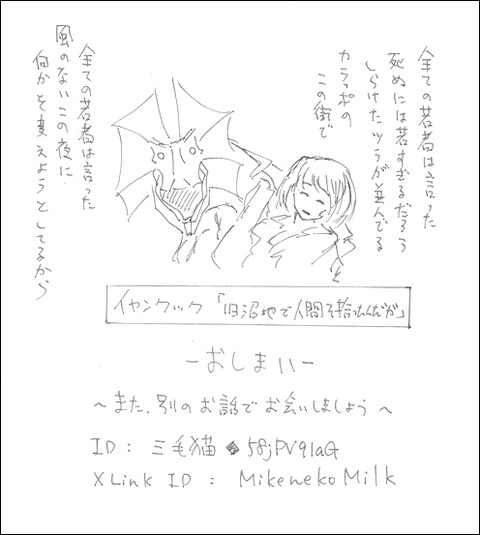 全ての若者は言った
死ぬには若すぎるだろう
しらけたツラが並んでる
カラッポの
この街で
全ての若者は言った
風のないこの夜に
何かを変えようとしてるから
イャンクック「旧沼地で人間を拾ったんだが」
−おしまい−
～また、別のお話でお会いしましょう～
ID : 三毛猫◆58jPV91aG
X Link ID : MikenekoMilk